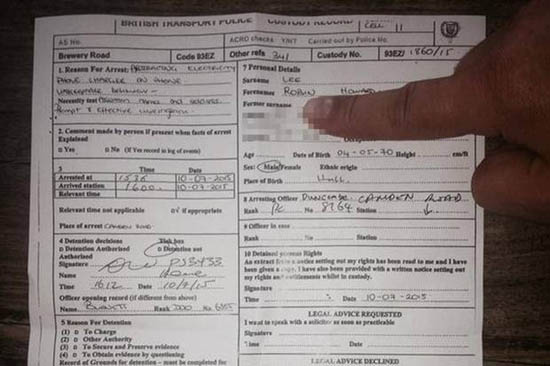 BRITISH TRANSPORT POLICE CUSTODY RECORD CELL 11
AS No. ACRO checks Y/N/T Carried out by Police No.
Brewery Road Code 93EZ Other refs 341 Custody No. 93EZ/ 1860/15
1. Reason For Arrest: ABSTRACTING ELECTRICITY
PHONE CHARGER ON PHONE
UNACCEPTABLE BEHAVIOUR -
Necessity test
Prompt & effective investigation.
2. Comment made by person if present when facts of arrest
Explained
Yes No (If Yes record in log of events)
3 Time Date
Arrested at 1535 10-07-2015
Arrived station 1600 10-07-2015
Relevant time
Relevant time not applicable if appropriate
Place of arrest CAMDEN ROAD
4 Detention decisions Tick box
Detention Authorised Detention not
Authorised
Signature
Name
Time 16.12 Date 10/7/15
Officer opening record (if different from above)
Name Rank No
5 Reason For Detention
(1) To Charge
(2) Other Authority
(3) To Secure and Preserve evidence
(4) To Obtain evidence by questioning
Record of Grounds for detention - must be completed for
7 Personal Details
Surname LEE
Forenames ROBIN HOWARD
Former surname
Age Date of Birth 04-05-70 Height cm/ft
Sex: Male/Female Ethnic origin
Place of Birth Hull
8 Arresting Officer CAMDEN ROAD
Rank PC No 8764 Station
9 Officer in case
Rank No Station
10 Detained persons Rights
An extract from a notice setting out my rights has been read to me and I have
been given a copy. I have also been provided with a written notice setting out
my rights and entitlements whilst in custody.
Signature
Time Date 10-07-2015
LEGAL ADVICE REQUESTED
I want to speak with a solicitor as soon as practicable
Signature
Time Date
LEGAL ADVICE DECLINED